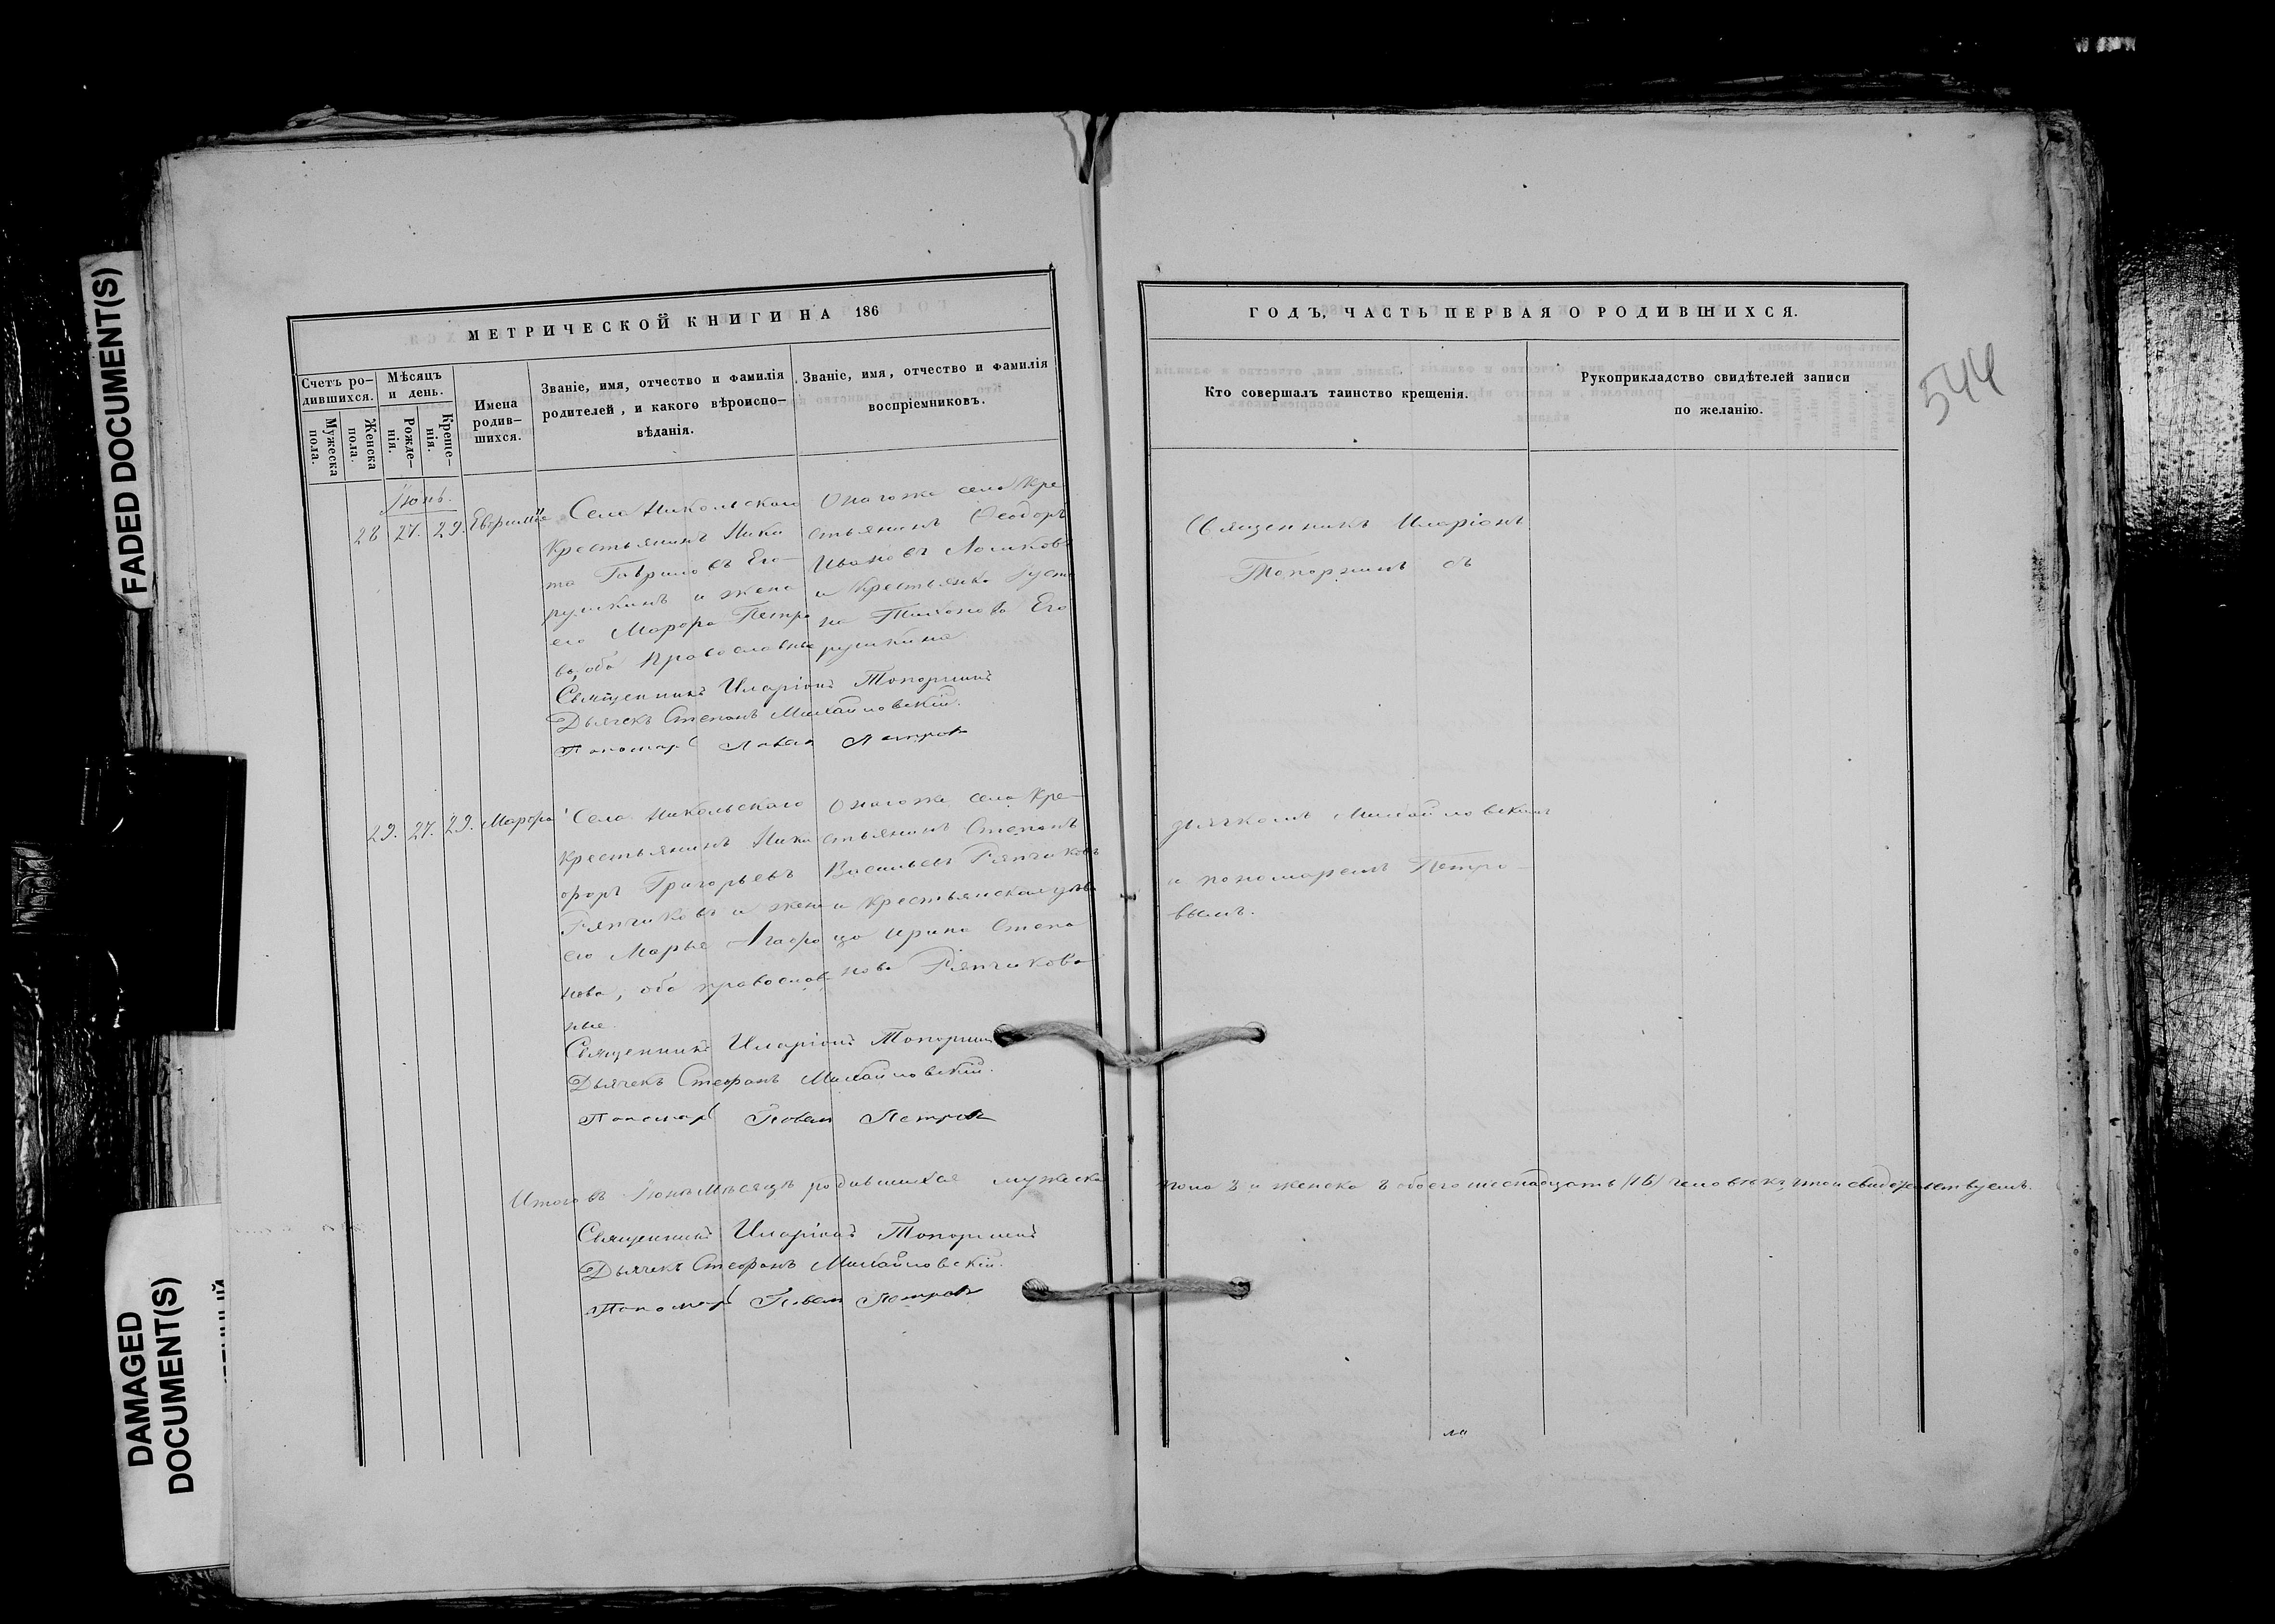 FADED DOCUMENT(S)
DAMAGED
DOCUMENT(S)
МЕТРИЧЕСКОЙ КНИГИ НА 186
Счетъ ро-
дившихся.
Мужеска
пола.
Женска
пола.
Мѣсяцъ
и день.
Рожде-
нія.
Креще-
нія.
Имена
родив-
шихся.
Званіе, имя, отчество и фамилія
родителей, и какого вѣроиспо-
вѣданія.
Званіе, имя, отчество и фамилія
воспріемниковъ.
Іюнь.
28 27. 29. Евфимія
Села Никольскаго
Крестьянинъ Ники
та Гавриловъ Его-
рушкинъ и жена
его Марфа Петро
ва, оба православные
Онагоже села Кре
стьянинъ Феодоръ
Ивановъ Ломиковъ
и Крестьянка Усти
на Тихонова Его
рушкина
Священникъ Иларіонъ Топорнинъ
Дьячекъ Стефанъ Михайловскій.
Пономарь Павелъ Петровъ
29. 27. 29. Марфа
Села Никольскаго
Крестьянинъ Ники
форъ Григорьевъ
Ряпчиковъ и жена
его Марья Агафо
нова, оба православ
ные
Онагоже села Кре-
стьянинъ Степанъ
Васильевъ Ряпчиковъ
и крестьянская дѣви
ца Ирина Степа
нова Ряпчикова
Священникъ Иларіонъ Топорнинъ
Дьячекъ Стефанъ Михайловскій.
Пономарь Павелъ Петровъ
Итого въ Іюнѣ мѣсяцѣ родившихся мужеска
Священникъ Иларіонъ Топорнинъ
Дьячекъ Стефанъ Михайловскій.
Пономарь Павелъ Петровъ
ГОДЪ, ЧАСТЬ ПЕРВАЯ О РОДИВШИХСЯ.
544
Кто совершалъ таинство крещенія.
Рукоприкладство свидѣтелей записи
по желанію.
Священникъ Иларіонъ
Топорнинъ съ
дьячкомъ Михайловскимъ
и пономаремъ Петро-
вымъ.
пола 8 и женска 8 обоего шеснадцать /16/ человѣкъ, что и свидѣтельствуемъ.